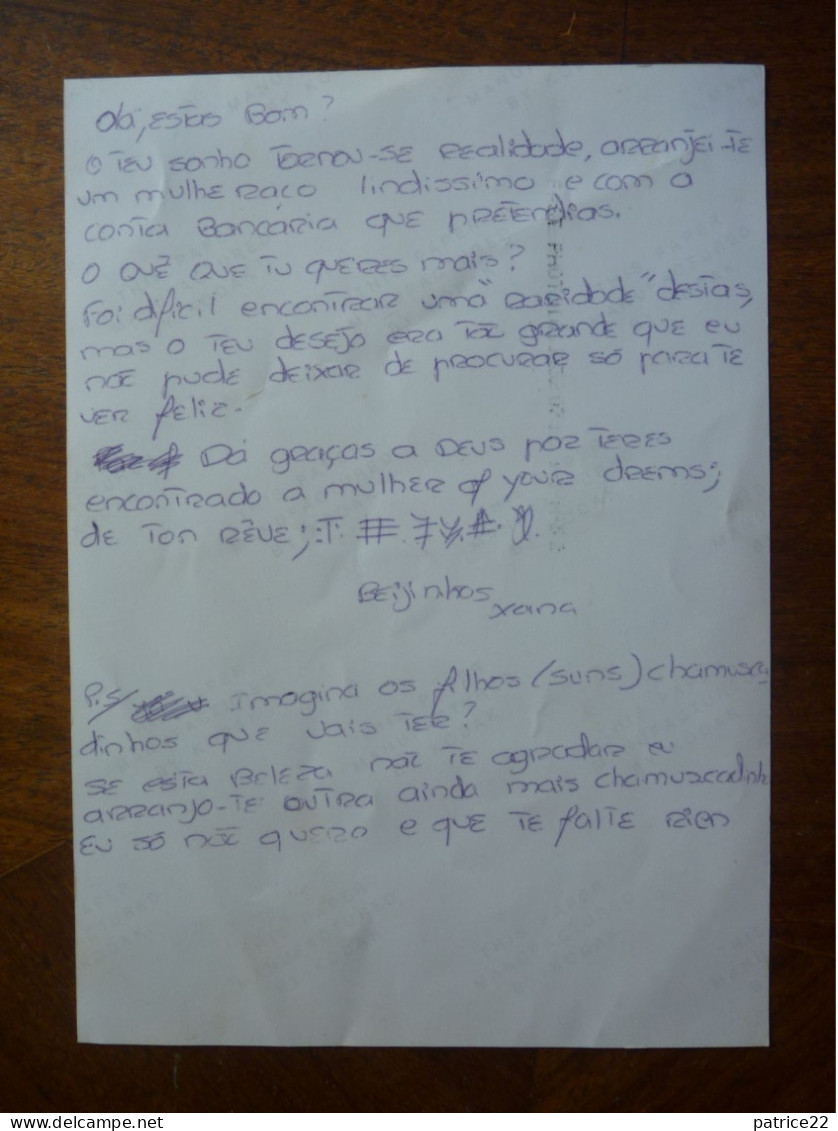 Olá, estás Bom?
O teu sonho tornou-se realidade, arranjei-te
um mulheraço lindissimo e com a
conta Bancária que pretendias.
O quê que tu queres mais?
Foi dificil encontrar uma "raridade" destas,
mas o teu desejo era tão grande que eu
não pude deixar de procurar só para te
ver feliz.
Dá graças a Deus por teres
encontrado a mulher of your drems;
de ton rêve;
Beijinhos
xana
P.S/ Imagina os filhos (suns) chamusca
dinhos que vais ter?
se esta Beleza não te agradar eu
arranjo-te outra ainda mais chamuscadinha
Eu só não quero e que te falte rien
patrice22